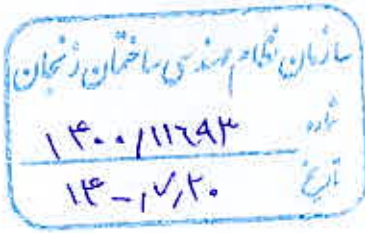 سازمان نظام مهندسی ساختمان زنجان
شماره ۱۴۰۰/۱۱۶۹۳
تاریخ ۱۴۰۰/۷/۲۰